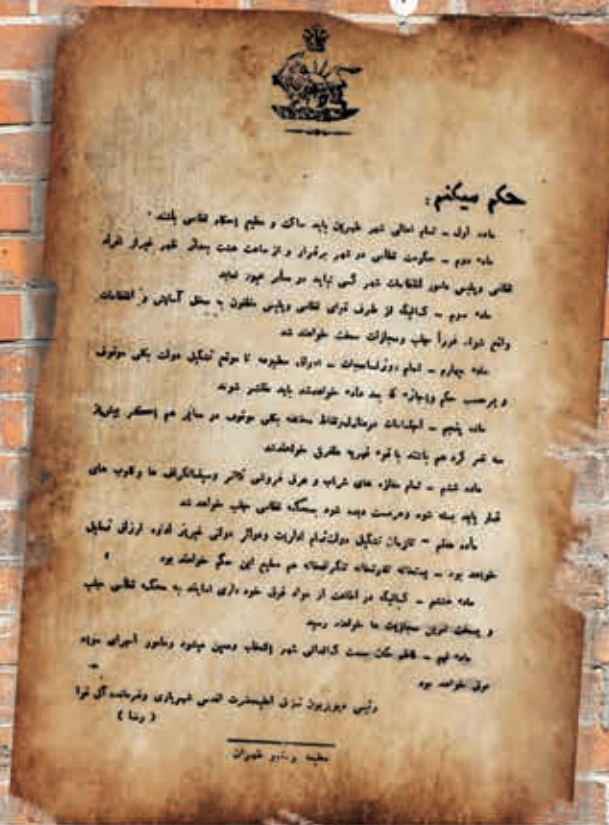 حکم میکنم :
ماده اول – تمام اهالی شهر طهران باید ساکت و مطیع احکام نظامی باشند .
ماده دوم – حکومت نظامی در شهر برقرار و از ساعت هشت بعداز ظهر غیراز افراد
نظامی وپلیس مامور انتظامات شهر کسی نباید در معابر عبور نماید
ماده سوم – کسانیکه از طرف قوای نظامی وپلیس مظنون به مخل آسایش و انتظامات
واقع شوند فوراً جلب ومجازات سخت خواهند شد
ماده چهارم – تمام روزنامجات – اوراق مطبوعه تا موقع تشکیل دولت بکلی موقوف
و برحسب حکم واجازه که بعد داده خواهدشد باید منتشر شوند
ماده پنجم – اجتماعات درمنازل ونقاط مختلفه بکلی موقوف در معابر هم اگر بیش از
سه نفر گرد هم باشند با قوه قهریه متفرق خواهندشد
ماده ششم – تمام مغازه های شراب و عرق فروشی تآتر وسینما فتگراف ها وکلوب های
قمار باید بسته شود وهرمست دیده شود بمحکمه نظامی جلب خواهد شد
ماده هفتم – تازمان تشکیل دولت تمام ادارات ودوائر دولتی غیراز اداره ارزاق تعطیل
خواهد بود – پستخانه تلفونخانه تلگرافخانه هم مطیع این حکم خواهند بود
ماده هشتم – کسانیکه در اطاعت از مواد فوق خود داری نمایند به محکمه نظامی جلب
و بسخت ترین مجازات ها خواهند رسید
ماده نهم – کاظم خان بسمت کماندانی شهر انتخاب ومعین میشود ومامور اجرای مواد
فوق خواهد بود
رئیس دیویزیون قزاق اعلیحضرت اقدس شهریاری وفرمانده کل قوا
( رضا )
مطبعه طهران